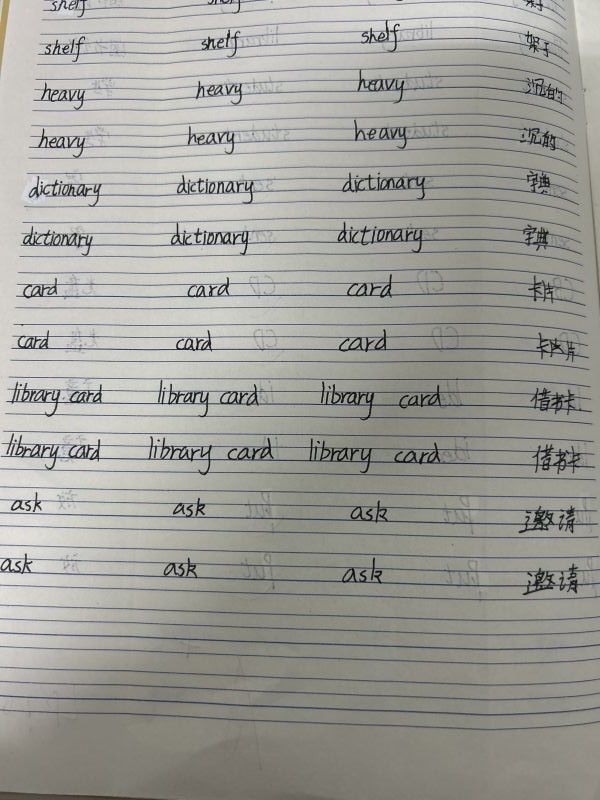 shelf shelf shelf 架子
shelf shelf shelf 架子
heavy heavy heavy 沉的
heavy heavy heavy 沉的
dictionary dictionary dictionary 字典
dictionary dictionary dictionary 字典
card card card 卡片
card card card 卡片
library card library card library card 借书卡
library card library card library card 借书卡
ask ask ask 邀请
ask ask ask 邀请